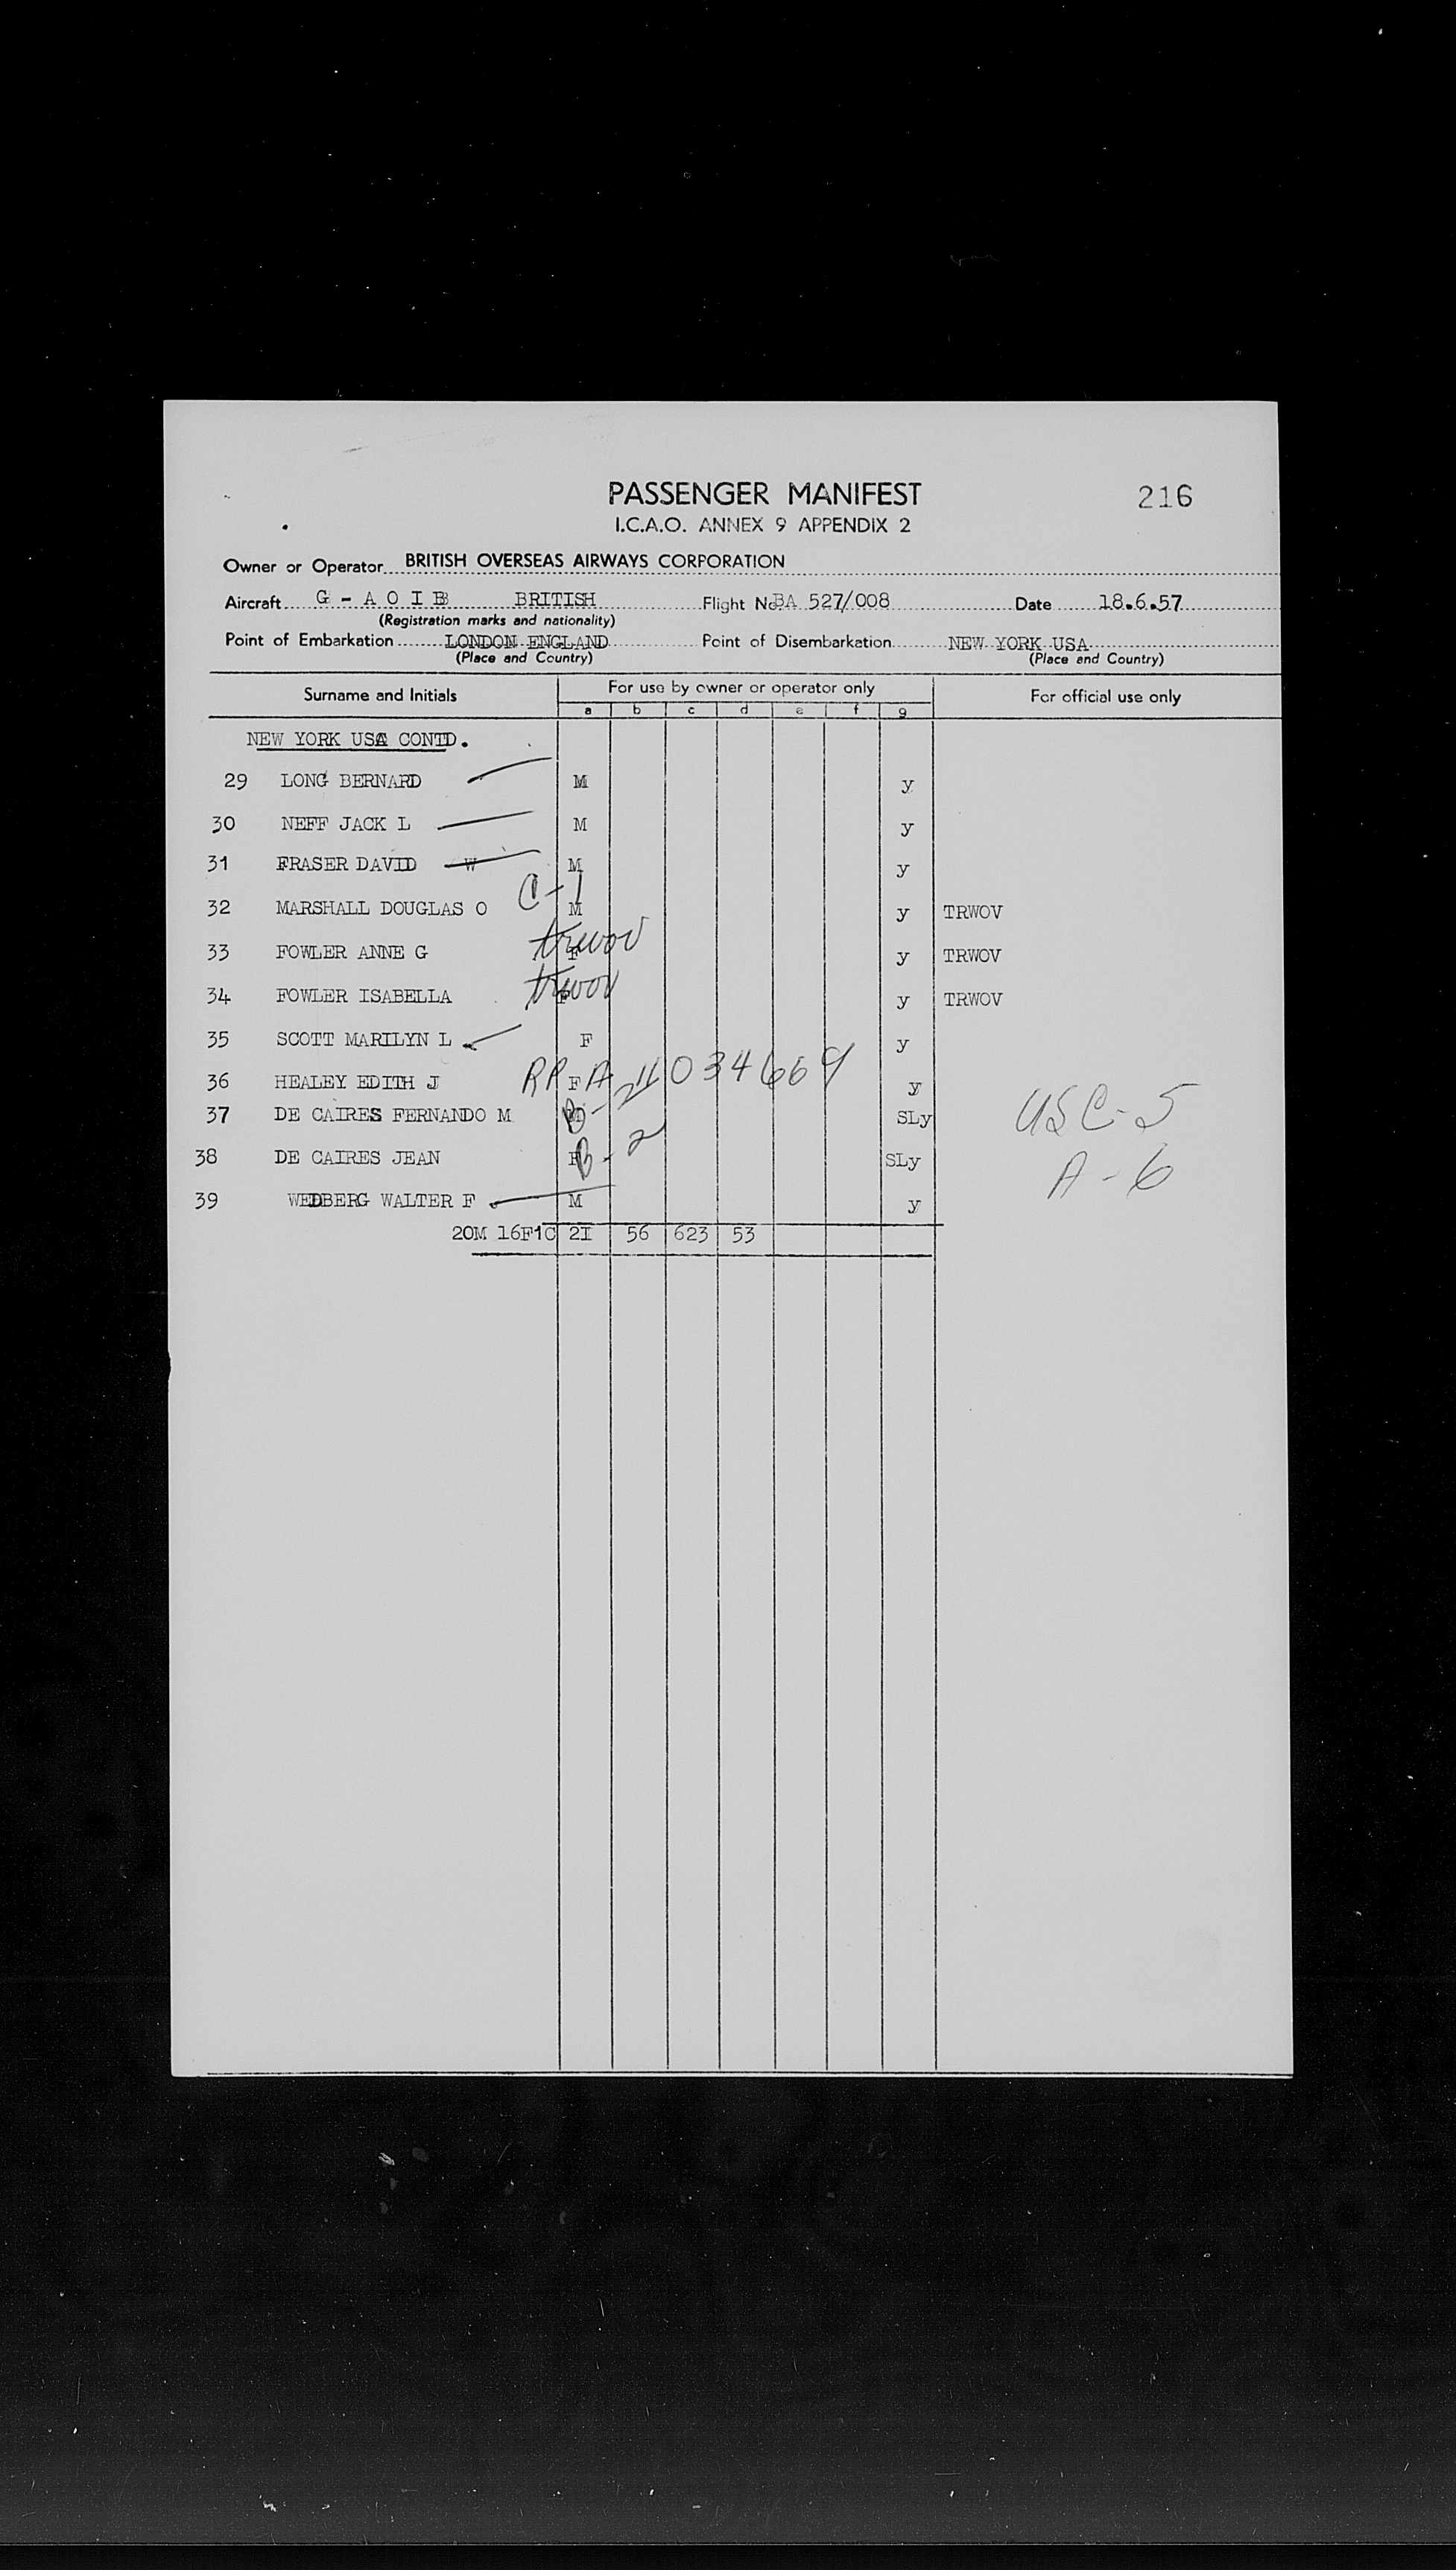 PASSENGER MANIFEST 216
I.C.A.O. ANNEX 9 APPENDIX 2
Owner or Operator BRITISH OVERSEAS AIRWAYS CORPORATION
Aircraft G - A O I B BRITISH Flight No BA 527/008 Date 18.6.57
(Registration marks and nationality)
Point of Embarkation LONDON ENGLAND Point of Disembarkation NEW YORK USA
(Place and Country) (Place and Country)
Surname and Initials For use by owner or operator only For official use only
a b c d e f g
NEW YORK USA CONTD.
29 LONG BERNARD M y
30 NEFF JACK L M y
31 FRASER DAVID W M y
32 MARSHALL DOUGLAS O C-1 M y TRWOV
33 FOWLER ANNE G trwov F y TRWOV
34 FOWLER ISABELLA trwov F y TRWOV
35 SCOTT MARILYN L F y
36 HEALEY EDITH J RP F A y
37 DE CAIRES FERNANDO M M B-2 SLy USC-5
38 DE CAIRES JEAN F B-2 SLy A-6
39 WEDBERG WALTER F M y
20M 16F1C 2I 56 623 53